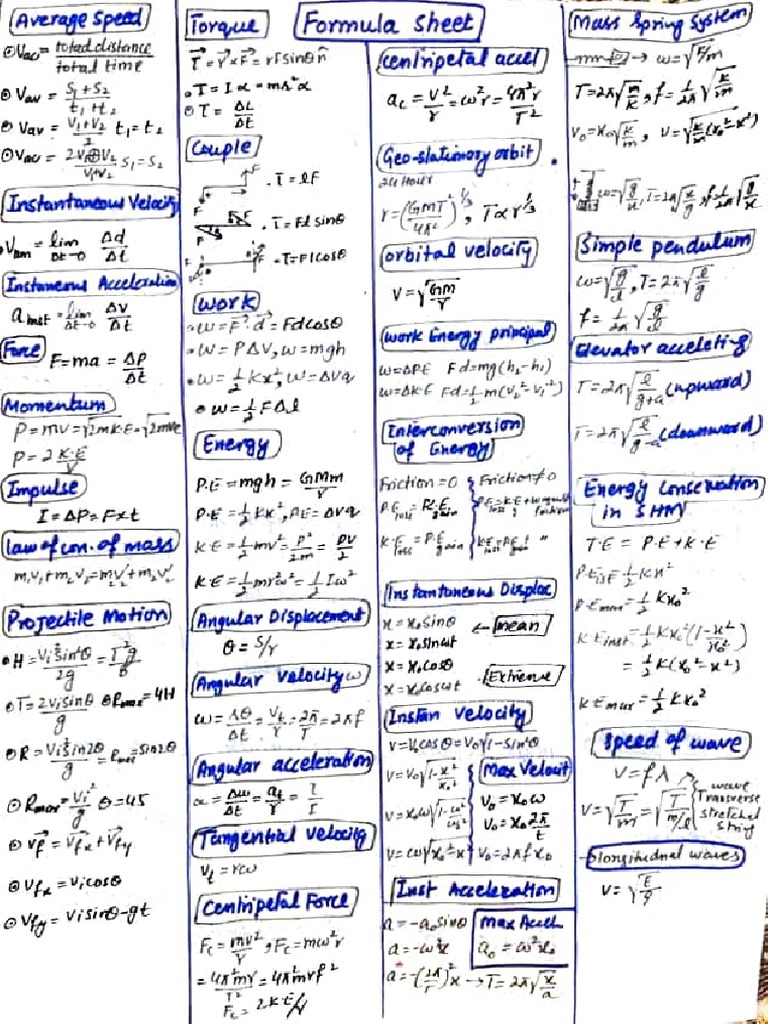 Formula Sheet
Average Speed
⊙ Vav = total distance / total time
⊙ Vav = S₁+S₂ / t₁+t₂
⊙ Vav = V₁+V₂ / 2 t₁=t₂
⊙ Vav = 2V₁⊕V₂ / V₁+V₂ S₁=S₂
Instantaneous Velocity
Vins = lim Δt→0 Δd/Δt
Instaneous Acceleration
a inst = lim Δt→0 ΔV/Δt
Force F=ma = ΔP/Δt
Momentum
P=mv=√2mK.E=√2mVe
P=2K.E/V
Impulse
I=ΔP=F×t
law of con. of mass
m₁v₁+m₂v₂=m₁v₁'+m₂v₂'
Projectile Motion
• H=Vi²sin²θ/2g = T²g/8
⊙ T=2Visinθ/g ⊙ Rmax=4H
⊙ R=Vi²sin2θ/g = Rmax=sin2θ
⊙ Rmax=Vi²/g θ=45
⊙ Vf=Vfx+Vfy
⊙ Vfx=Vicosθ
⊙ Vfy=Visinθ-gt
Torque
τ=r×F=rFsinθ n̂
• τ=Iα=mr²α
⊙ τ=ΔL/Δt
Couple
F F • τ=lF
F F • τ=Flsinθ
F F • τ=Flcosθ
Work
• W=F.d=Fdcosθ
• W=PΔV, W=mgh
• W=½Kx², W=ΔVq
• W=½FΔl
Energy
P.E=mgh=GMm/r
P.E=½Kx², P.E=ΔVq
K.E=½mv²=P²/2m=PV/2
K.E=½mr²ω²=½Iω²
Angular Displacement
θ=S/r
Angular Velocity ω
ω=Δθ/Δt=Vt/r=2π/T=2πf
Angular acceleration
α=Δω/Δt=at/r=τ/I
Tangential Velocity
Vt=rω
Centripetal Force
Fc=mv²/r, Fc=mω²r
=4π²mr/T²=4π²mrf²
Fc=2K.E/r
Centripetal accel
ac=V²/r=ω²r=4π²r/T²
Geo-stationary orbit
24 Hour
r=(GMT²/4π²)^1/3, T∝r^1/3
orbital velocity
V=√GM/r
Work Energy principal
W=ΔP.E Fd=mg(h₂-h₁)
W=ΔK.E Fd=½m(V₂²-V₁²)
Interconversion
of Energy
Friction=0 Friction≠0
P.E loss=K.E gain
K.E loss=P.E gain
Instantaneous Displac
x=x₀sinθ
x=x₀sinωt ← mean
x=x₀cosθ
x=x₀cosωt Extreme
Instan Velocity
V=V₀cosθ=V₀√1-sin²θ
V=V₀√1-x²/x₀² Max Velocit
V₀=x₀ω
V=x₀ω√1-x²/x₀² V₀=x₀2π/t
V=ω√x₀²-x² V₀=2πfx₀
Inst Acceleration
a=-a₀sinθ Max Accel
a=-ω²x a₀=ω²x₀
a=-(2π/T)²x → T=2π√x/a
Mass Spring System
→ ω=√K/m
T=2π√m/K, f=1/2π√K/m
V₀=x₀√K/m, V=√K/m(x₀²-x²)
ω=√g/x, T=2π√x/g, f=1/2π√g/x
Simple pendulum
ω=√g/l, T=2π√l/g
f=1/2π√g/l
Elevator acceleting
T=2π√l/g+a (upward)
T=2π√l/g-a (downward)
Energy Conservation
in SHM
T.E = P.E+K.E
P.E ins=½Kx²
P.Emax=½Kx₀²
K.Einst=½Kx₀²(1-x²/x₀²)
=½K(x₀²-x²)
K.Emax=½Kx₀²
Speed of wave
V=fλ
V=√T/m=√T/m/l wave
Transverse
stretched
string
longitudnal waves
V=√E/ρ